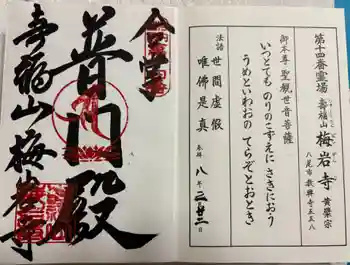 第十四番霊場
壽福山 梅岩寺 黄檗宗
八尾市教興寺五五八
御本尊 聖観世音菩薩
いつとても のりのこずえに さきにおう
うめといわおの てらぞとおとき
法語 世間虚假
唯佛是真
奉拝 八年二月廿二日
合掌
普門殿
壽福山梅岩寺